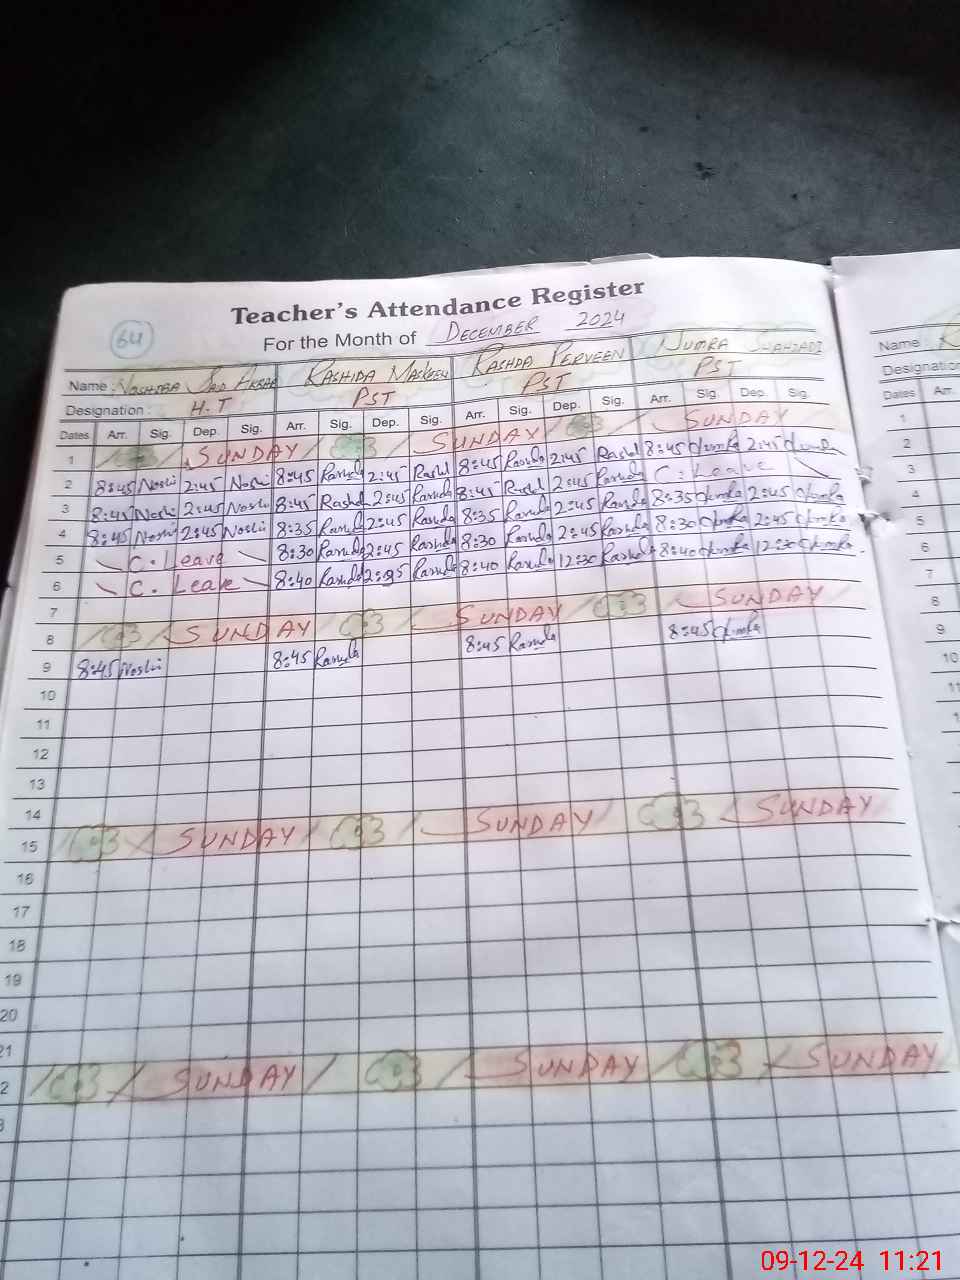 Teacher's Attendance Register
64
For the Month of DECEMBER 2024
Name : Said Akbar RASHIDA MASKEEN RASHDA PERVEEN NUMRA SHAHZADI
Designation : H.T PST PST PST
Dates Arr. Sig. Dep. Sig. Arr. Sig. Dep. Sig. Arr. Sig. Dep. Sig. Arr. Sig. Dep. Sig.
1 SUNDAY SUNDAY SUNDAY
2 8:45 Noshi 2:45 Noshi 8:45 2:45 Rashd 8:45 2:45 Rashd 8:45 2:45
3 8:45 Noshi 2:45 Noshi 8:45 Rashd 2:45 8:45 Rashd 2:45 C. Leave
4 8:45 Noshi 2:45 Noshi 8:35 2:45 8:35 2:45 8:35 2:45
5 C. Leave 8:30 2:45 8:30 2:45 8:30 2:45
6 C. Leave 8:40 8:40 12:30 8:40 12:30
7
8 SUNDAY SUNDAY SUNDAY
9 8:45 Noshi 8:45 8:45 8:45
10
11
12
13
14
15 SUNDAY SUNDAY SUNDAY
16
17
18
19
20
21
2 SUNDAY SUNDAY SUNDAY
3
Name :
Designation
Dates Arr.
1
2
3
4
5
6
7
8
9
10
11
09-12-24 11:21